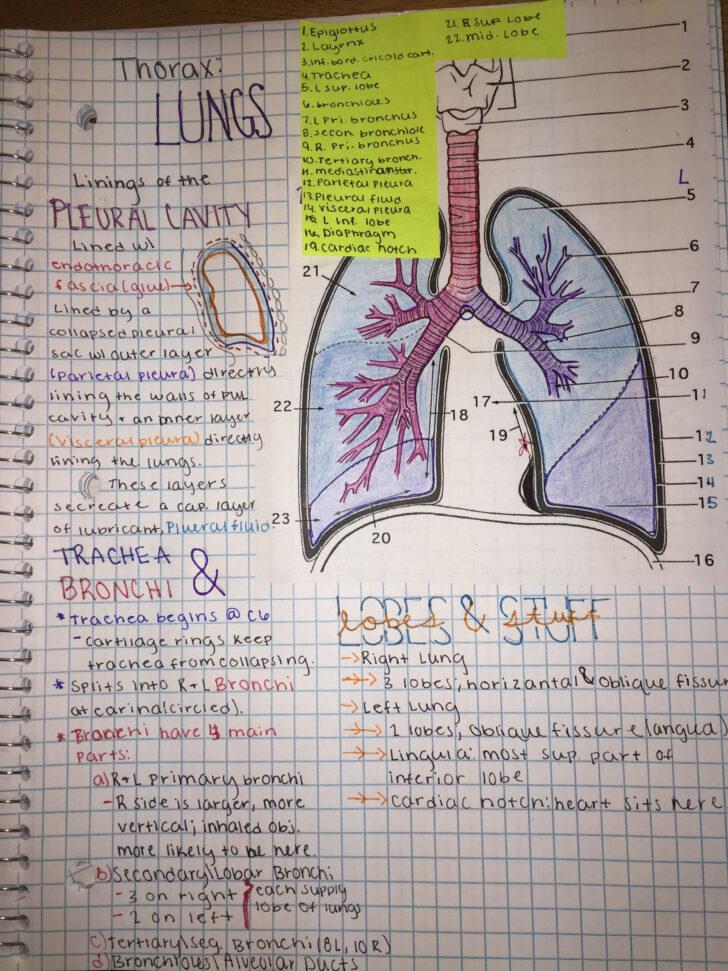 Thorax:
LUNGS
Linings of the
PLEURAL CAVITY
Lined w/
endothoracic
fascia (glue)→
Lined by a
collapsed pleural
sac w/ outer layer
(parietal pleura) directly
lining the walls of pul.
cavity + an inner layer
(visceral pleura) directly
lining the lungs.
These layers
secreate a cap. layer
of lubricant, Plueral fluid
TRACHEA
& BRONCHI
* Trachea begins @ C6
- cartilage rings keep
trachea from collapsing.
* Splits into R+L Bronchi
at carina (circled).
* Bronchi have 4 main
parts:
a) R+L primary bronchi
- R side is larger, more
vertical; inhaled obj.
more likely to be here.
b) Secondary\Lobar Bronchi
- 3 on right
- 2 on left
each supply
lobe of lungs
c) Tertiary\seg. Bronchi (8L, 10R)
d) Bronchioles\Alveolar Ducts
1. Epiglottus
2. Layrnx
3. Inf. bord. cricoid cart.
4. Trachea
5. L sup. lobe
6. bronchioles
7. L Pri. bronchus
8. secon bronchiole
9. R. Pri. bronchus
10. Tertiary bronch.
12. Parietal pleura
13. Pleural fluid
14. Visceral pleura
15. L Inf. lobe
16. Diaphragm
19. Cardiac notch
21. R sup lobe
22. mid. lobe
1
2
3
4
L
5
6
7
8
9
10
11
12
13
14
15
16
17
18
19
20
21
22
23
LOBES & STUFF
→ Right Lung
→→ 3 lobes; horizantal & oblique fissur
→ Left Lung
→→ 2 lobes; oblique fissure (langua)
→→ Lingula: most sup. part of
inferior lobe
→→ cardiac notch: heart sits here